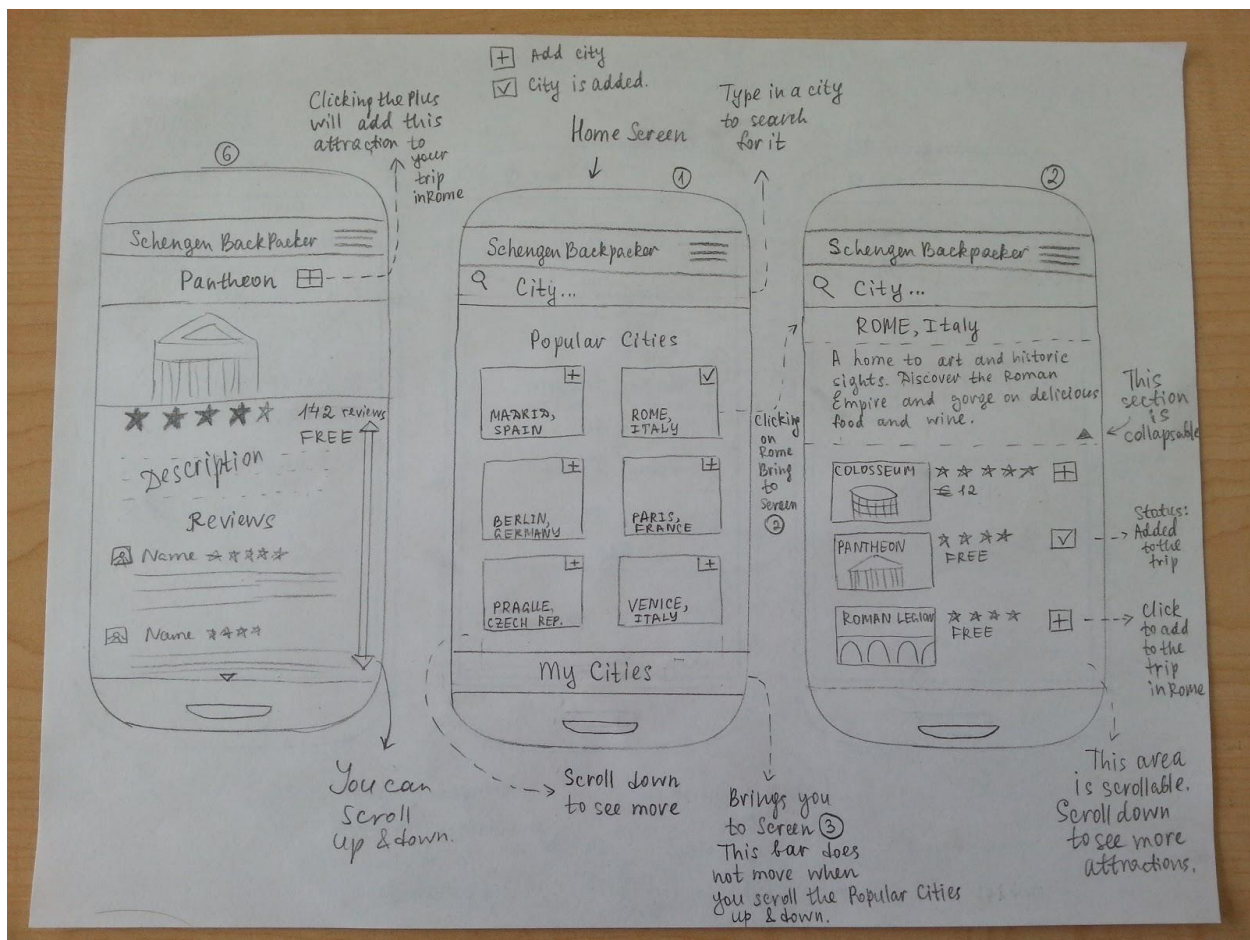 + Add city
✓ City is added.
Home Screen
Clicking the Plus
will add this
attraction to
your
trip
in Rome
6
Schengen BackPacker
Pantheon +
142 reviews
FREE
Description
Reviews
Name
Name
You can
Scroll
up & down.
1
Schengen Backpacker
City...
Popular Cities
+
MADRID,
SPAIN
✓
ROME,
ITALY
+
BERLIN,
GERMANY
+
PARIS,
FRANCE
+
PRAGUE,
CZECH REP.
+
VENICE,
ITALY
My Cities
Type in a city
to search
for it
Clicking
on
Rome
Bring
to
Screen
2
Scroll down
to see move
Brings you
to Screen 3
This bar does
not move when
you scroll the Popular Cities
up & down.
2
Schengen Backpacker
City...
ROME, Italy
A home to art and historic
sights. Discover the Roman
Empire and gorge on delicious
food and wine.
This
section
is
collapsable
COLOSSEUM
€ 12
+
PANTHEON
FREE
✓
ROMAN LEGION
FREE
+
Status:
Added
to the
trip
Click
to add
to the
trip
in Rome
This area
is scrollable.
Scroll down
to see more
attractions.